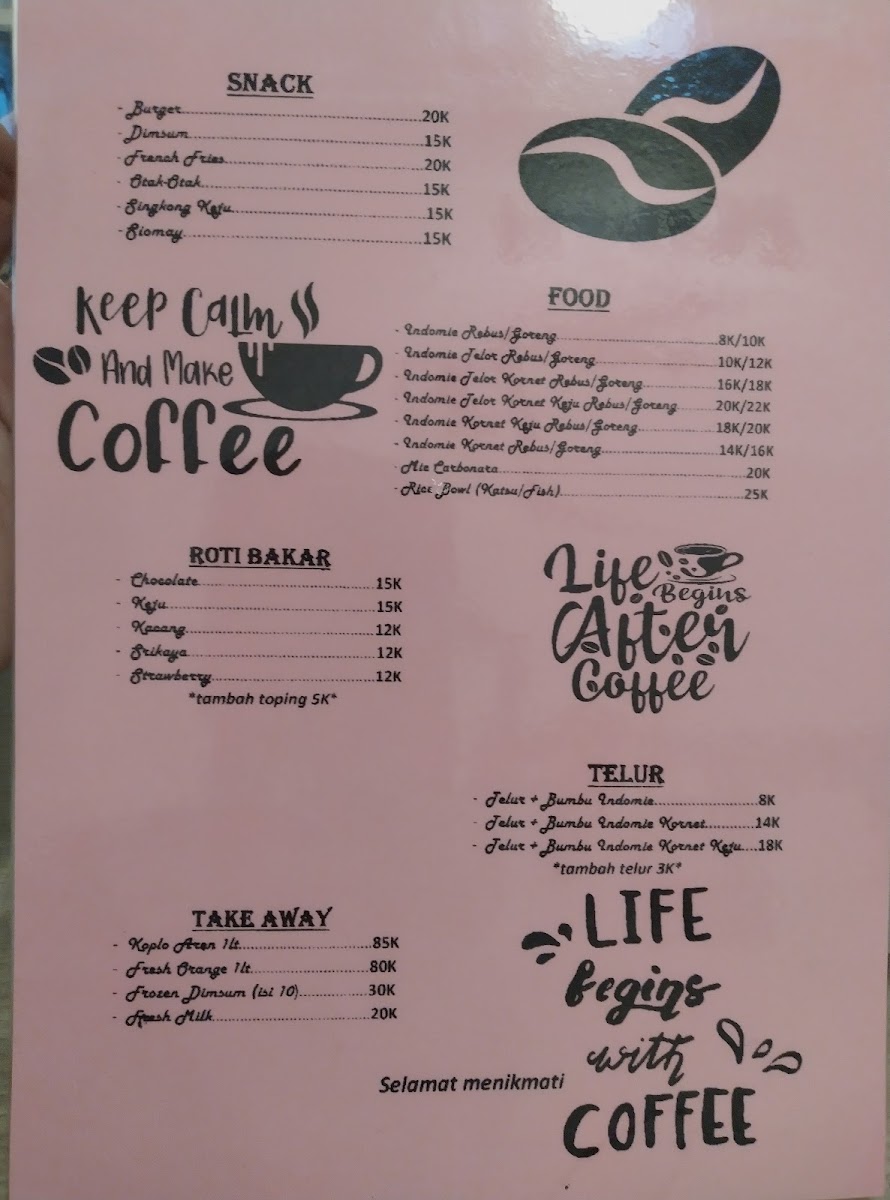 SNACK
- Burger....................20K
- Dimsum....................15K
- French Fries....................20K
- Otak-Otak....................15K
- Singkong Keju....................15K
- Siomay....................15K
Keep Calm
And Make
Coffee
FOOD
- Indomie Rebus/Goreng....................8K/10K
- Indomie Telor Rebus/Goreng....................10K/12K
- Indomie Telor Kornet Rebus/Goreng....................16K/18K
- Indomie Telor Kornet Keju Rebus/Goreng..........20K/22K
- Indomie Kornet Keju Rebus/Goreng....................18K/20K
- Indomie Kornet Rebus/Goreng....................14K/16K
- Mie Carbonara....................20K
- Rice Bowl (Katsu/Fish)....................25K
ROTI BAKAR
- Chocolate....................15K
- Keju....................15K
- Kacang....................12K
- Srikaya....................12K
- Strawberry....................12K
*tambah toping 5K*
Life
Begins
After
Coffee
TELUR
- Telur + Bumbu Indomie....................8K
- Telur + Bumbu Indomie Kornet............14K
- Telur + Bumbu Indomie Kornet Keju....18K
*tambah telur 3K*
TAKE AWAY
- Koplo Aren 1lt....................85K
- Fresh Orange 1lt....................80K
- Frozen Dimsum (isi 10)....................30K
- Fresh Milk....................20K
LIFE
begins
with
COFFEE
Selamat menikmati